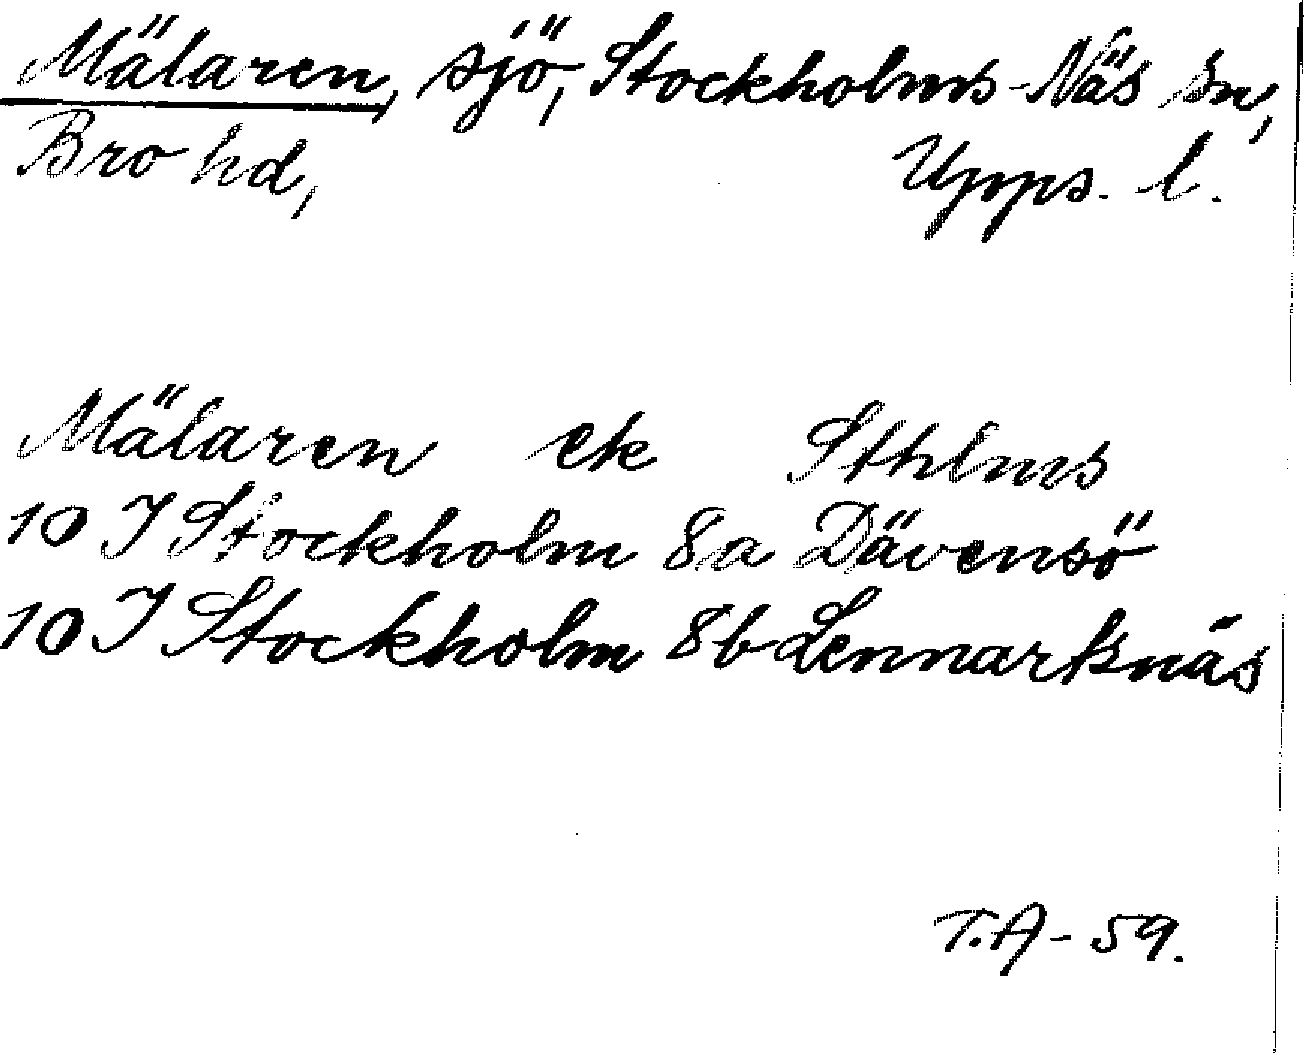 Mälaren, sjö, Stockholms-Näs sn,
Bro hd, Upps. l.
Mälaren ek Sthlms
10 I Stockholm 8a Dävensö
10 I Stockholm 8b Lennartsnäs
T.A-59.